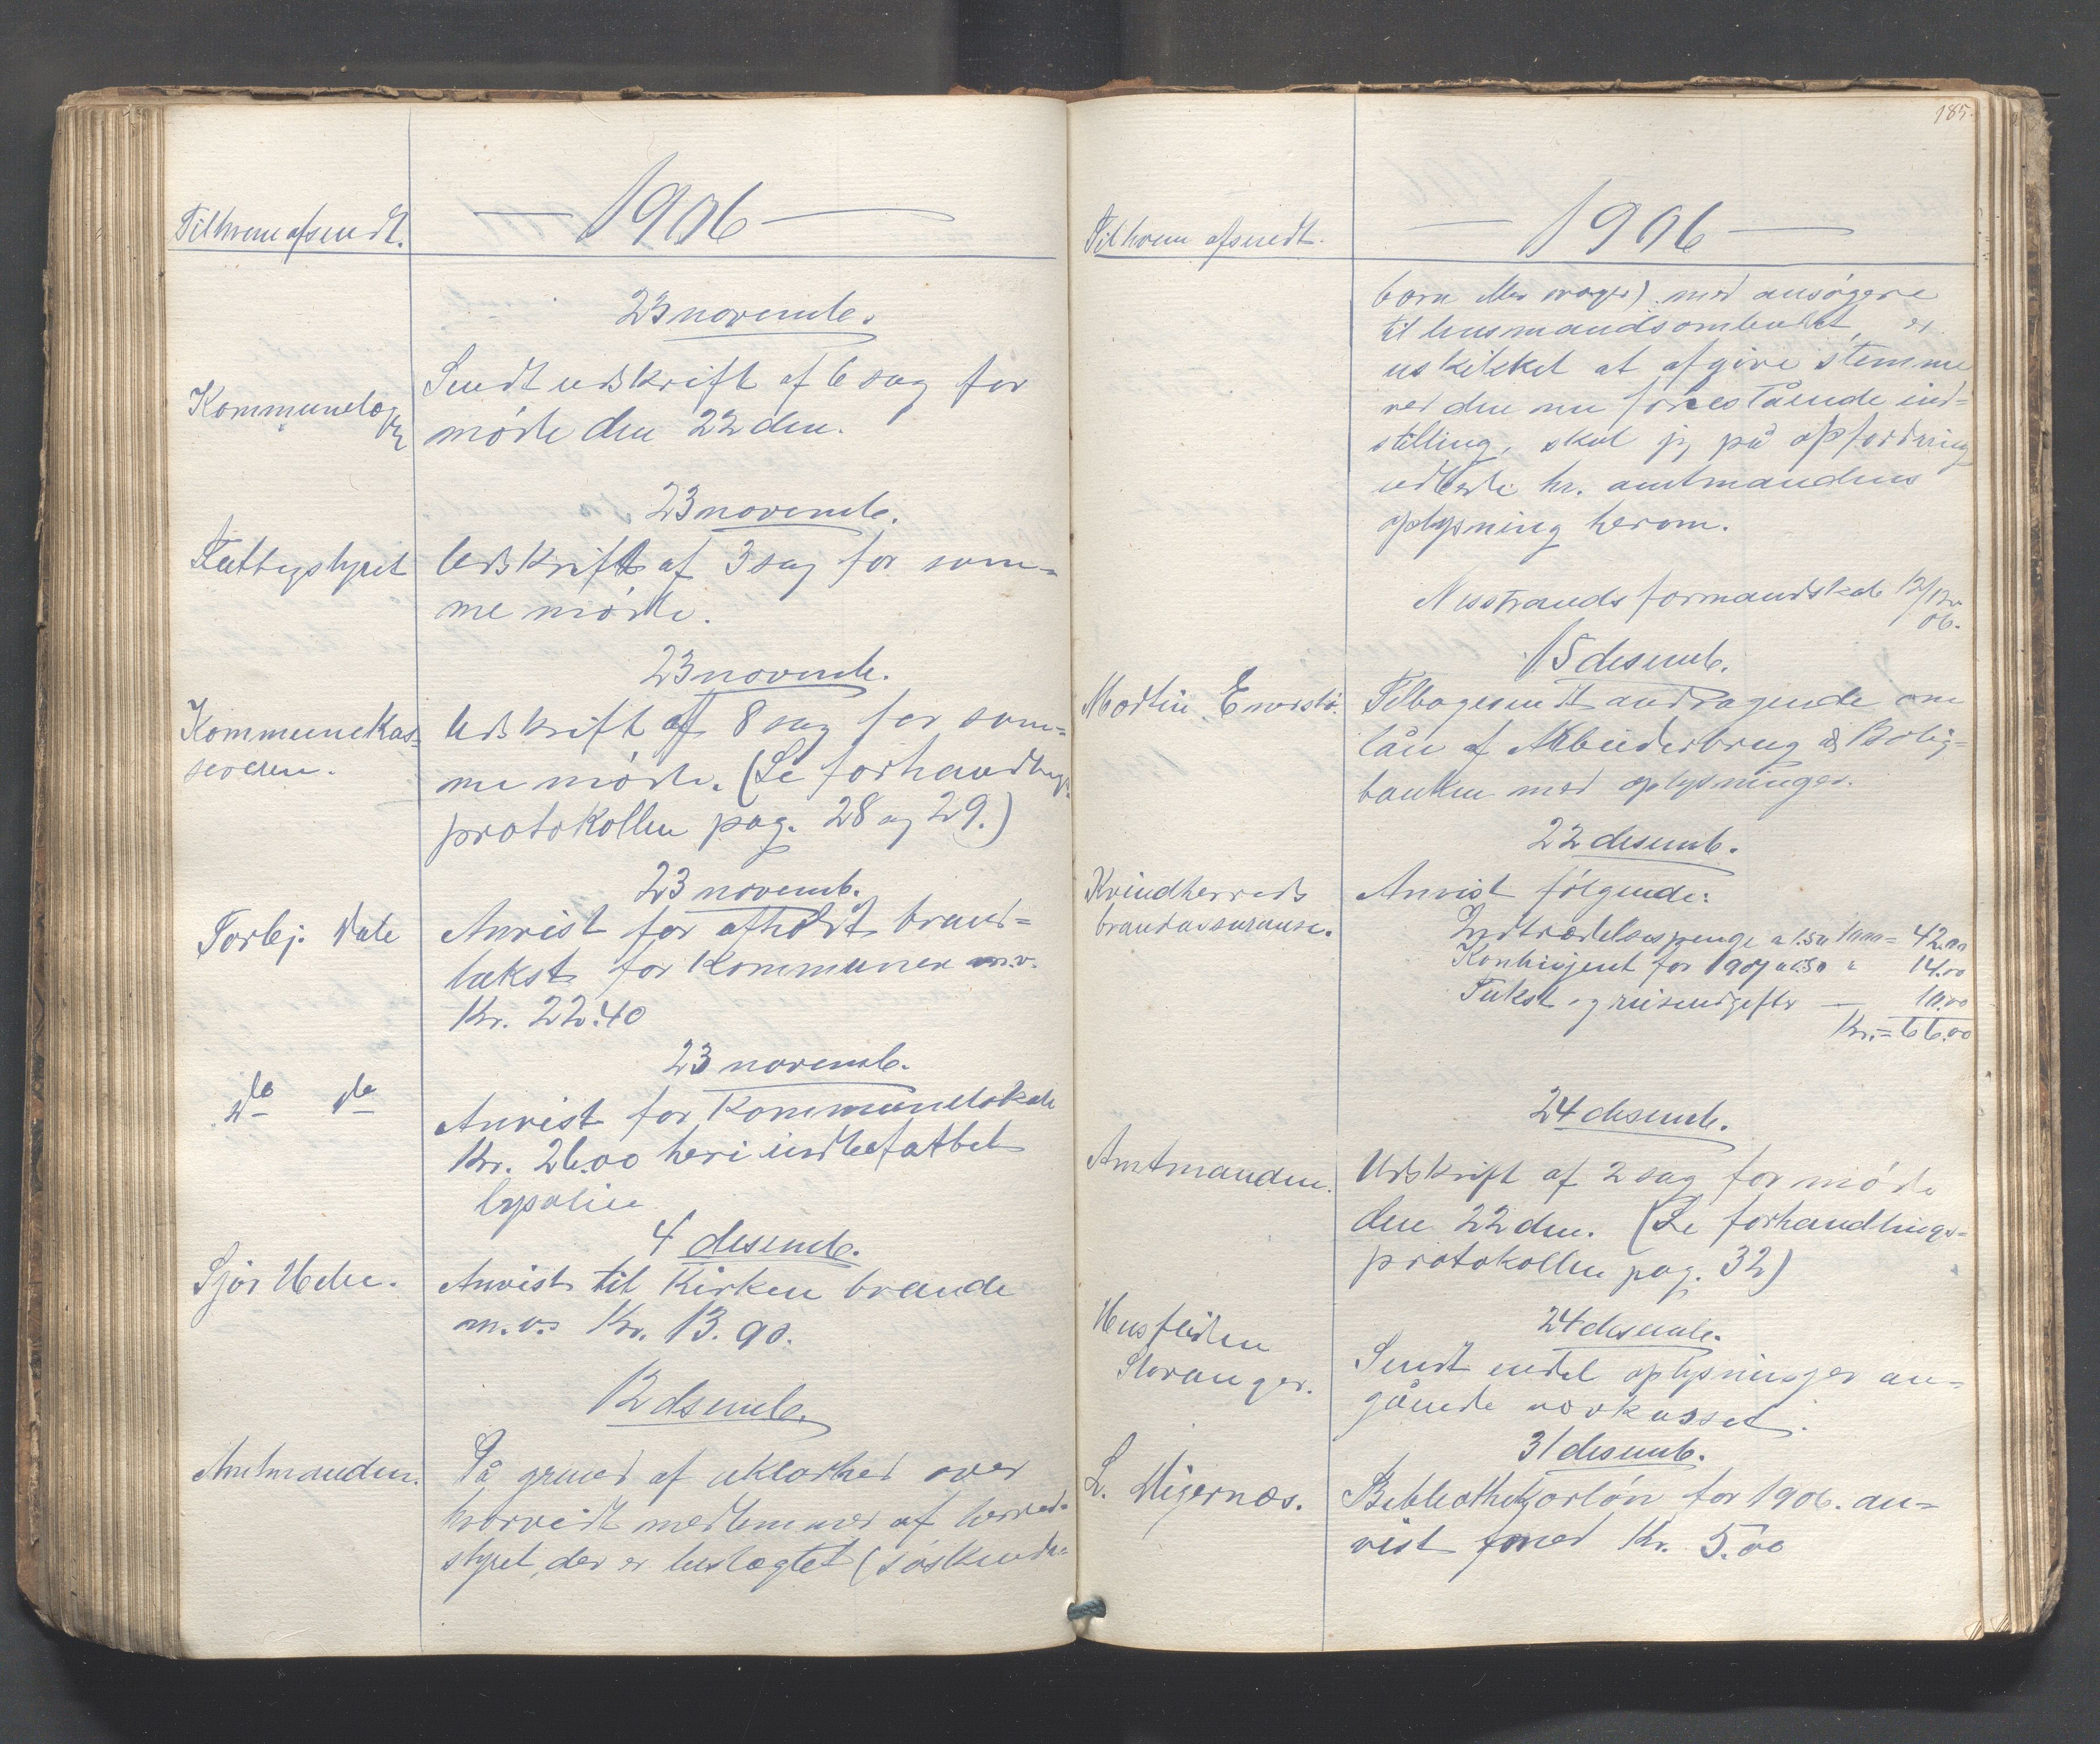 Til hvem afsendt.
— 1906 —
23 novemb.
Kommunelægen
Sendt udskrift af 6 sag for
møde den 22 den.
23 novemb.
Fattigstyret
Udskrift af 3 sag for sam=
me møde.
23 novemb.
Kommunekas=
sereren.
Udskrift af 8 sag for sam=
me møde. (Se forhandlings
protokollen pag. 28 og 29.)
23 novemb.
Torbj. Dale
Anvist for afholdt brand=
takst for Kommunen m.v.
Kr. 22.40
23 novemb.
do do
Anvist for Kommunelokale
Kr. 26.00 heri indbefattet
lysolien
4 desemb.
Sjør
Anvist til Kirken brænde
m.v. Kr. 13.90.
12 desemb.
Amtmanden.
På grund af uklarhed over
hvorvidt medlemmer af herred=
styret, der er beslægtet (søskende=
185
Til hvem afsendt.
— 1906 —
børn med ansøgere
til husmandsombudet, er
uskikket at afgive stemme
ved den nu forestående ind=
stilling, skal jeg på opfordring
udbede hr. amtmandens
oplysning herom.
Nesstrands formandskab 12/12
06.
15 desemb.
Tilbagesendt andragende om
lån af Arbeiderbrug & Bolig=
banken med oplysninger.
22 desemb.
Kvindherreds
brandassuranse.
Anvist følgende:
Indtrædelsespenge a 1.50 = 42.00
Kontinjent for 1907 a 0.50 " 14.00
Takst og reiseudgifter — 10.00
Kr. = 66.00
24 desemb.
Amtmanden.
Udskrift af 2 sag for møde
den 22 den. (Se forhandlings=
protokollen pag. 32)
24 desemb.
Husfliden
Stavanger.
Sendt endel oplysninger an=
gående
31 desemb.
L. Migernes.
Bibliothekarløn for 1906. an=
vist med Kr. 5.00